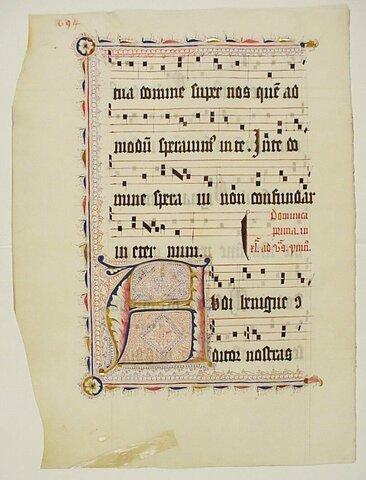 694
tua domine super nos quē ad
modū speravimꝰ in te. In te do
mine spera vi non confundar
in eter num.
Dominica
prima in
xlᵃ ad vꝰs. ymnꝰ.
Audi benigne c
ditor nostras